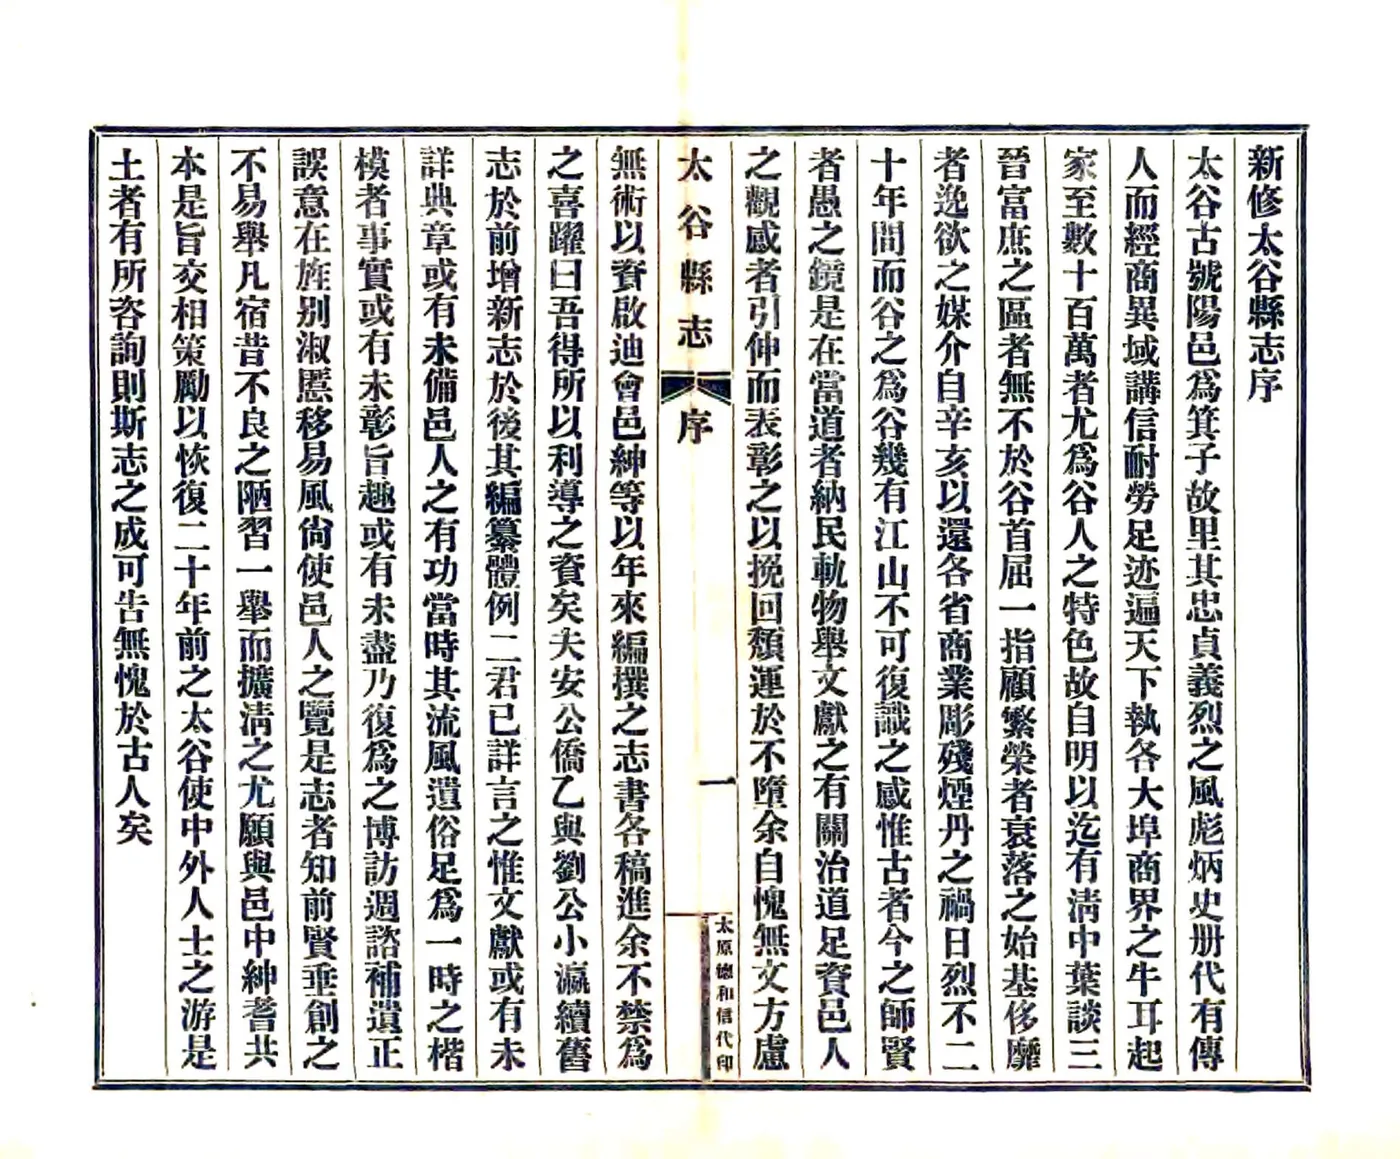 新修太谷縣志序
太谷古號陽邑爲箕子故里其忠貞義烈之風彪炳史册代有傳
人而經商異域講信耐勞足迹遍天下執各大埠商界之牛耳起
家至數十百萬者尤爲谷人之特色故自明以迄有淸中葉談三
晉富庶之區者無不於谷首屈一指顧繁榮者衰落之始基侈靡
者逸欲之媒介自辛亥以還各省商業彫殘煙丹之禍日烈不二
十年間而谷之爲谷幾有江山不可復識之感惟古者今之師賢
者愚之鏡是在當道者納民軌物舉文獻之有關治道足資邑人
之觀感者引伸而表彰之以挽回頹運於不墮余自愧無文方慮
太谷縣志
序
一
太原德和信代印
無術以資啟迪會邑紳等以年來編撰之志書各稿進余不禁爲
之喜躍曰吾得所以利導之資矣夫安公僑乙與劉公小瀛續舊
志於前增新志於後其編纂體例二君已詳言之惟文獻或有未
詳典章或有未備邑人之有功當時其流風遺俗足爲一時之楷
模者事實或有未彰旨趣或有未盡乃復爲之博訪週諮補遺正
誤意在旌别淑慝移易風尙使邑人之覽是志者知前賢垂創之
不易舉凡宿昔不良之陋習一舉而擴淸之尤願與邑中紳耆共
本是旨交相策勵以恢復二十年前之太谷使中外人士之游是
土者有所咨詢則斯志之成可告無愧於古人矣